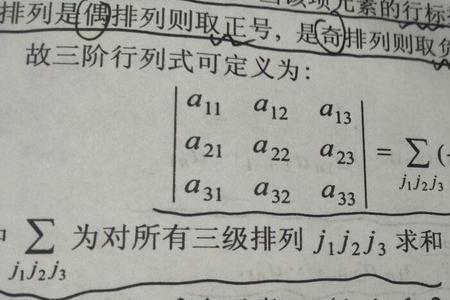 该项元素的行标
排列是偶排列则取正号，是奇排列则取负
故三阶行列式可定义为：
a11 a12 a13
a21 a22 a23 = ∑ (-
a31 a32 a33 j1j2j3
中 ∑ 为对所有三级排列 j1j2j3 求和
j1j2j3